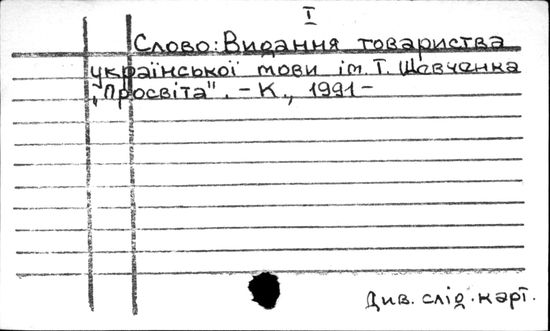 I
Слово: Видання товариства
української мови ім. Т. Шевченка
"Просвіта". - К., 1991 -
Див. слід. карт.